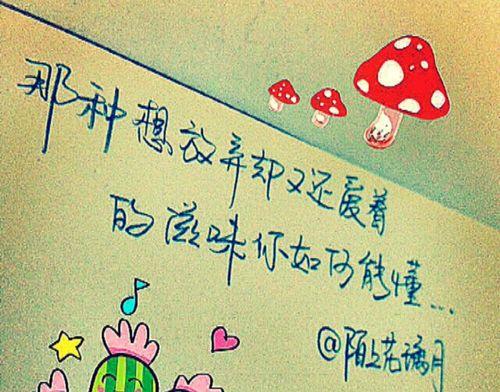 那种想放弃却又还爱着
的滋味你如何能懂...
@陌上花璃月